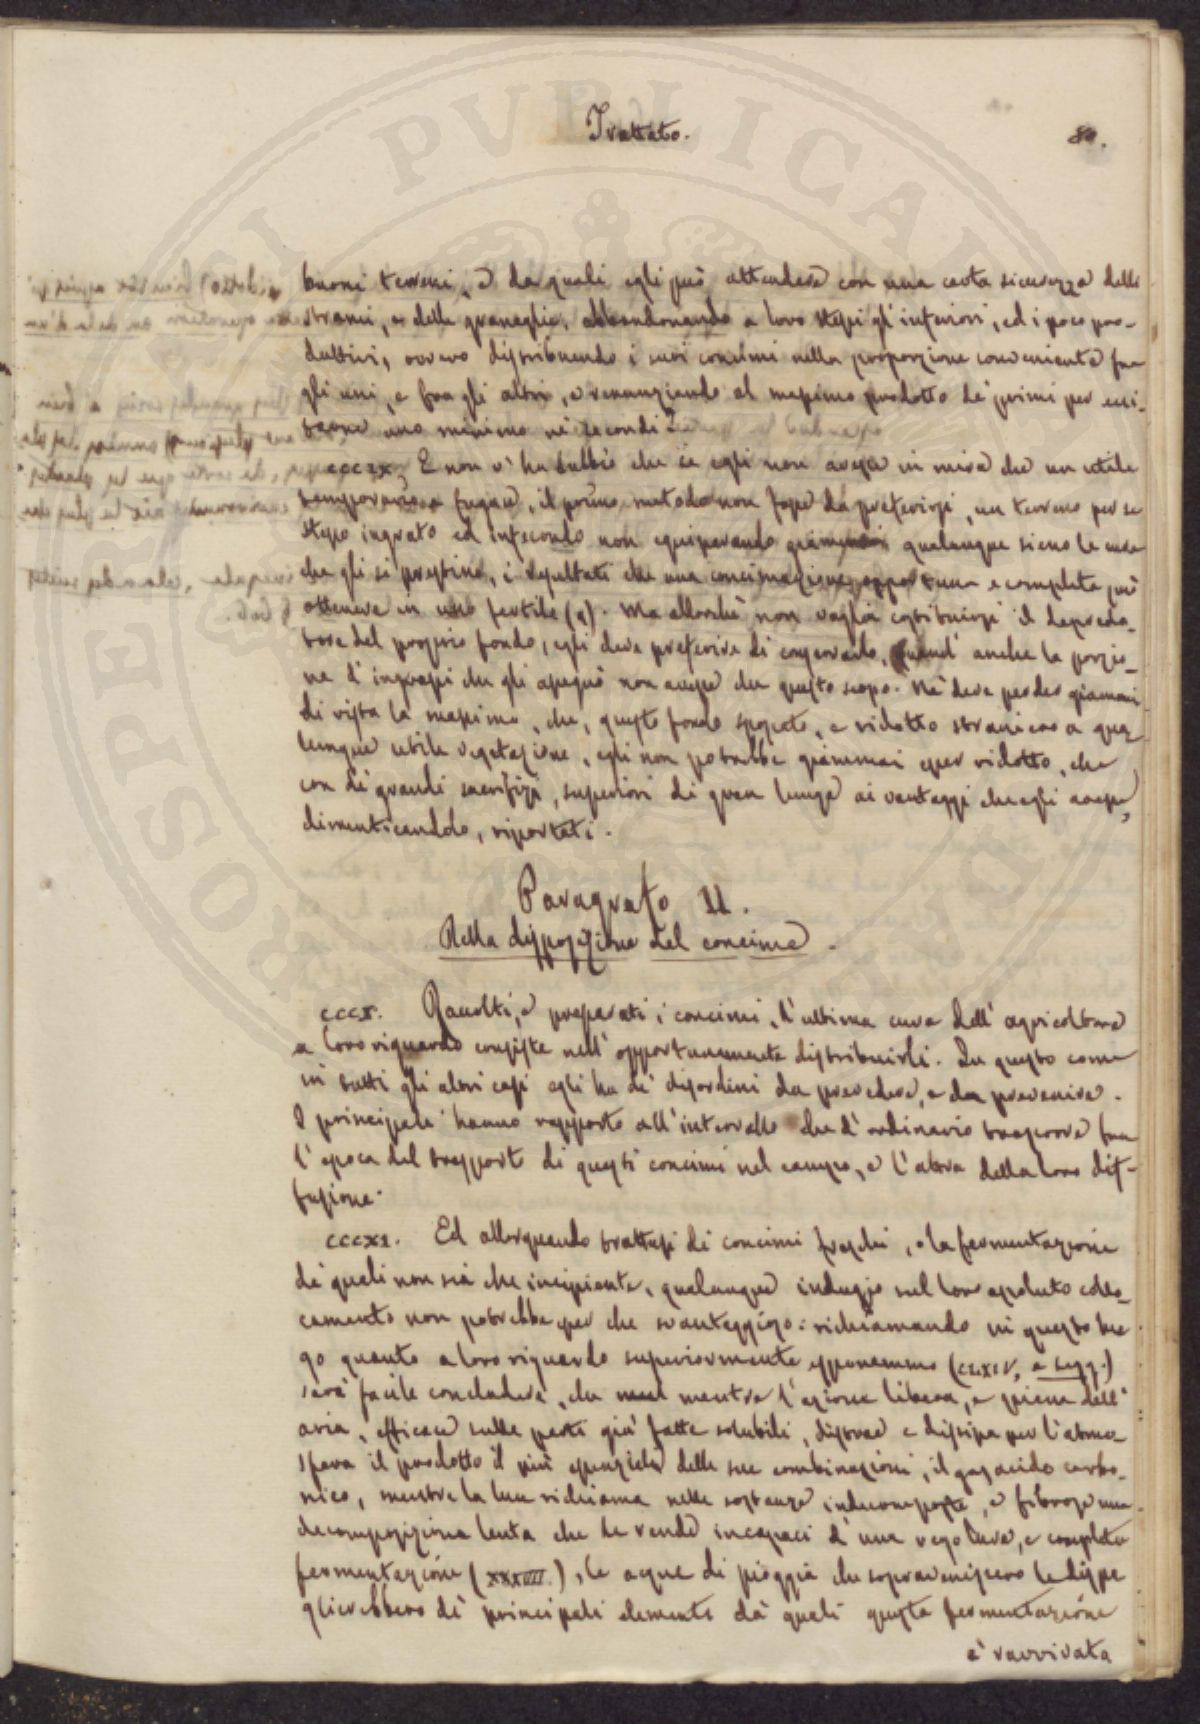 Trattato.
80.
buoni terreni, e da quali egli può attendere con una certa sicurezza delli
strami, e delle granaglie, abbandonando a loro stessi gl'inferiori, ed i poco pro-
duttivi, ovvero distribuendo i suoi concimi nella proporzione conveniente fra
gli uni, e fra gli altri, e renunziando al massimo prodotto de' primi per
uno minimo ne' secondi?
cccix. E non v'ha dubbio che se egli non avesse in mira che un utile
temporario e fugace, il primo metodo non fosse da preferirsi, un terreno per se
stesso ingrato ed infecondo non equiparando giammai qualunque sieno le cure
che gli si prestino, i resultati che una concimazione opportuna e completa può
ottenere in uno fertile (a). Ma allorchè non voglia costituirsi il depreda-
tore del proprio fondo, egli deve preferire di conservarlo, quand' anche la porzio-
ne d'ingrassi che gli assegnò non avesse che questo scopo. Nè deve perder giammai
di vista la massima, che, questo fondo spossato, e ridotto straniero a qua-
lunque utile vegetazione, egli non potrebbe giammai esser ridotto, che
con de' grandi sacrifizj, superiori di gran lunga ai vantaggi che egli avesse,
dimenticandolo, riportati.
Paragrafo II.
Della disposizione del concime.
cccx. Raccolti, e preparati i concimi, l'ultima cura dell' agricoltore
a loro riguardo consiste nell' opportunamente distribuirli. In questo come
in tutti gli altri casi egli ha de' disordini da prevedere, e da prevenire.
I principali hanno rapporto all'intervallo che d'ordinario trascorre fra
l'epoca del trasporto di questi concimi nel campo, e l'altra della loro dif-
fusione.
cccxi. Ed allorquando trattasi di concimi freschi, o la fermentazione
de' quali non sia che incipiente, qualunque indugio nel loro assoluto collo-
camento non potrebbe esser che svantaggioso: richiamando in questo luo
go quanto a loro riguardo superiormente esponemmo (clxiv, e segg.)
sarà facile concludere, che mentre l'azione libera, e piena dell'
aria, efficace sulle parti già fatte solubili, distrae e dissipa per l'atmo-
sfera il prodotto il più essenziale delle sue combinazioni, il gaz acido carbo-
nico, mentre la luce richiama nelle sostanze indecomposte, e fibrose una
decomposizione lenta che le rende incapaci d'una regolare, e completa
fermentazione (XXXVIII.), le acque di pioggia che sopravenissero le dispo
glierebbero de' principali elementi da' quali questa fermentazione
è ravvivata